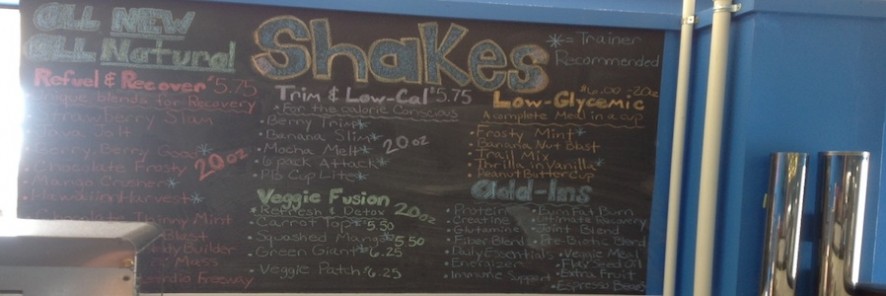 ALL NEW
ALL Natural
Shakes
*= Trainer
Recommended
Refuel & Recover $5.75
Unique blends for Recovery
Strawberry Slim
Java
Berry Goat*
Chocolate Frosty
20oz
Mango Crusher*
Hawaiian Harvest*
Chocolate Thinny Mint
Blast
Builder
Mass
Cardio Freeway
Trim & Low-Cal $5.75
*For the Calorie Conscious
• Berry Trim*
• Banana Slim*
• Mocha Melt*
20oz
• 6 pack Attack*
• PB Cup Lite*
Veggie Fusion
Refresh & Detox 20oz
• Carrot Top* 5.50
• Squashed Mango* 5.50
• Green Giant* 6.25
• Veggie Patch $6.25
$6.00 20oz
Low-Glycemic
A complete Meal in a cup
• Frosty Mint*
• Banana Nut Blast
• Trail Mix
• Thrilla in Vanilla*
• Peanut Butter Cup
add-Ins
• Protein
• Creatine
• Glutamine
• Fiber Blend
• Daily Essentials
• Energizer
• Immune Support
• Burn Fat Burn
• Ultimate Recovery
• Joint Blend
• Pre-Biotic Blend
• Veggie Meal
• Flax Seed Oil
• Extra Fruit
• Espresso Beans